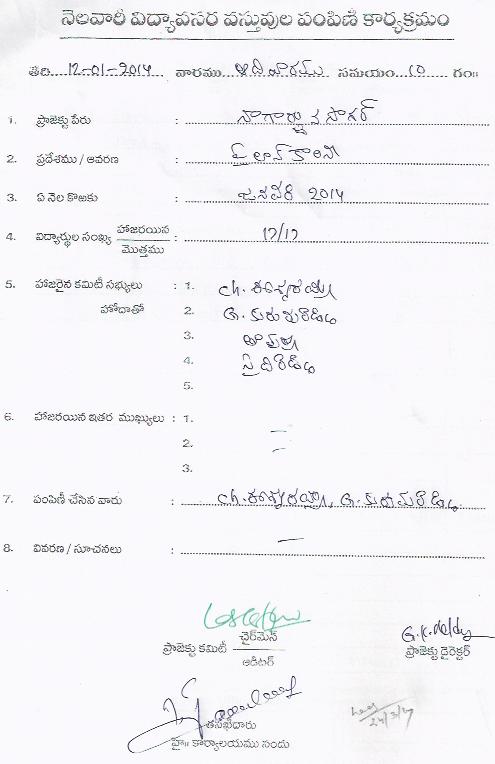 నెలవారీ విద్యావసర వస్తువుల పంపిణీ కార్యక్రమం
తేది 12-01-2014 వారము ఆదివారము సమయం 10 గం॥
1. ప్రాజెక్టు పేరు : నాగార్జున సాగర్
2. ప్రదేశము / ఆవరణ : పైలాన్ కాలని
3. ఏ నెల కొఱకు : జనవరి 2014
4. విద్యార్థుల సంఖ్య హాజరయిన / మొత్తము : 17/17
5. హాజరైన కమిటీ సభ్యులు : 1. Ch. ఈశ్వరయ్య
హోదాతో 2. G.
3.
4. సైదిరెడ్డి
5.
6. హాజరయిన ఇతర ముఖ్యులు : 1. —
2. —
3.
7. పంపిణీ చేసిన వారు : Ch. ఈశ్వరయ్య, G.
8. వివరణ / సూచనలు : —
చైర్‌మెన్
ప్రాజెక్టు కమిటీ
ఆడిటర్
G.K. Reddy
ప్రాజెక్టు డైరెక్టర్
తనిఖీదారు
హై॥ కార్యాలయము నందు